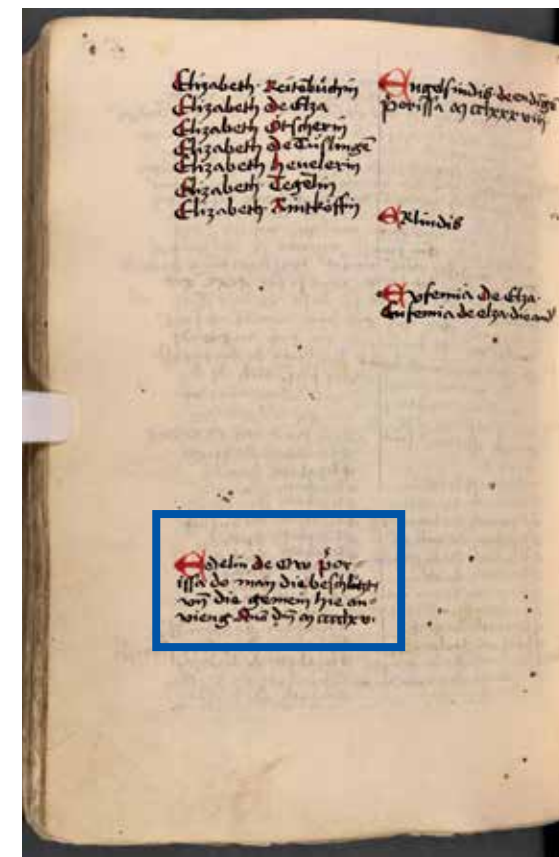 Elizabeth Reitēbuchin
Elizabeth de Elza
Elizabeth Ötscherin
Elizabeth de Tüslingē
Elizabeth heuelerin
Elizabeth Tegelin
Elizabeth Rintköffin
Engelsindis de endigē
p̄orissa M cclxxxviij
ERlindis
Eufemia de Elza
Eufemia de elza die and
Edelin de Ow p̄or-
issa do man die beschliesti
vn̄ die gemein hie an-
vieng Ano dn̄i M cccclxv.